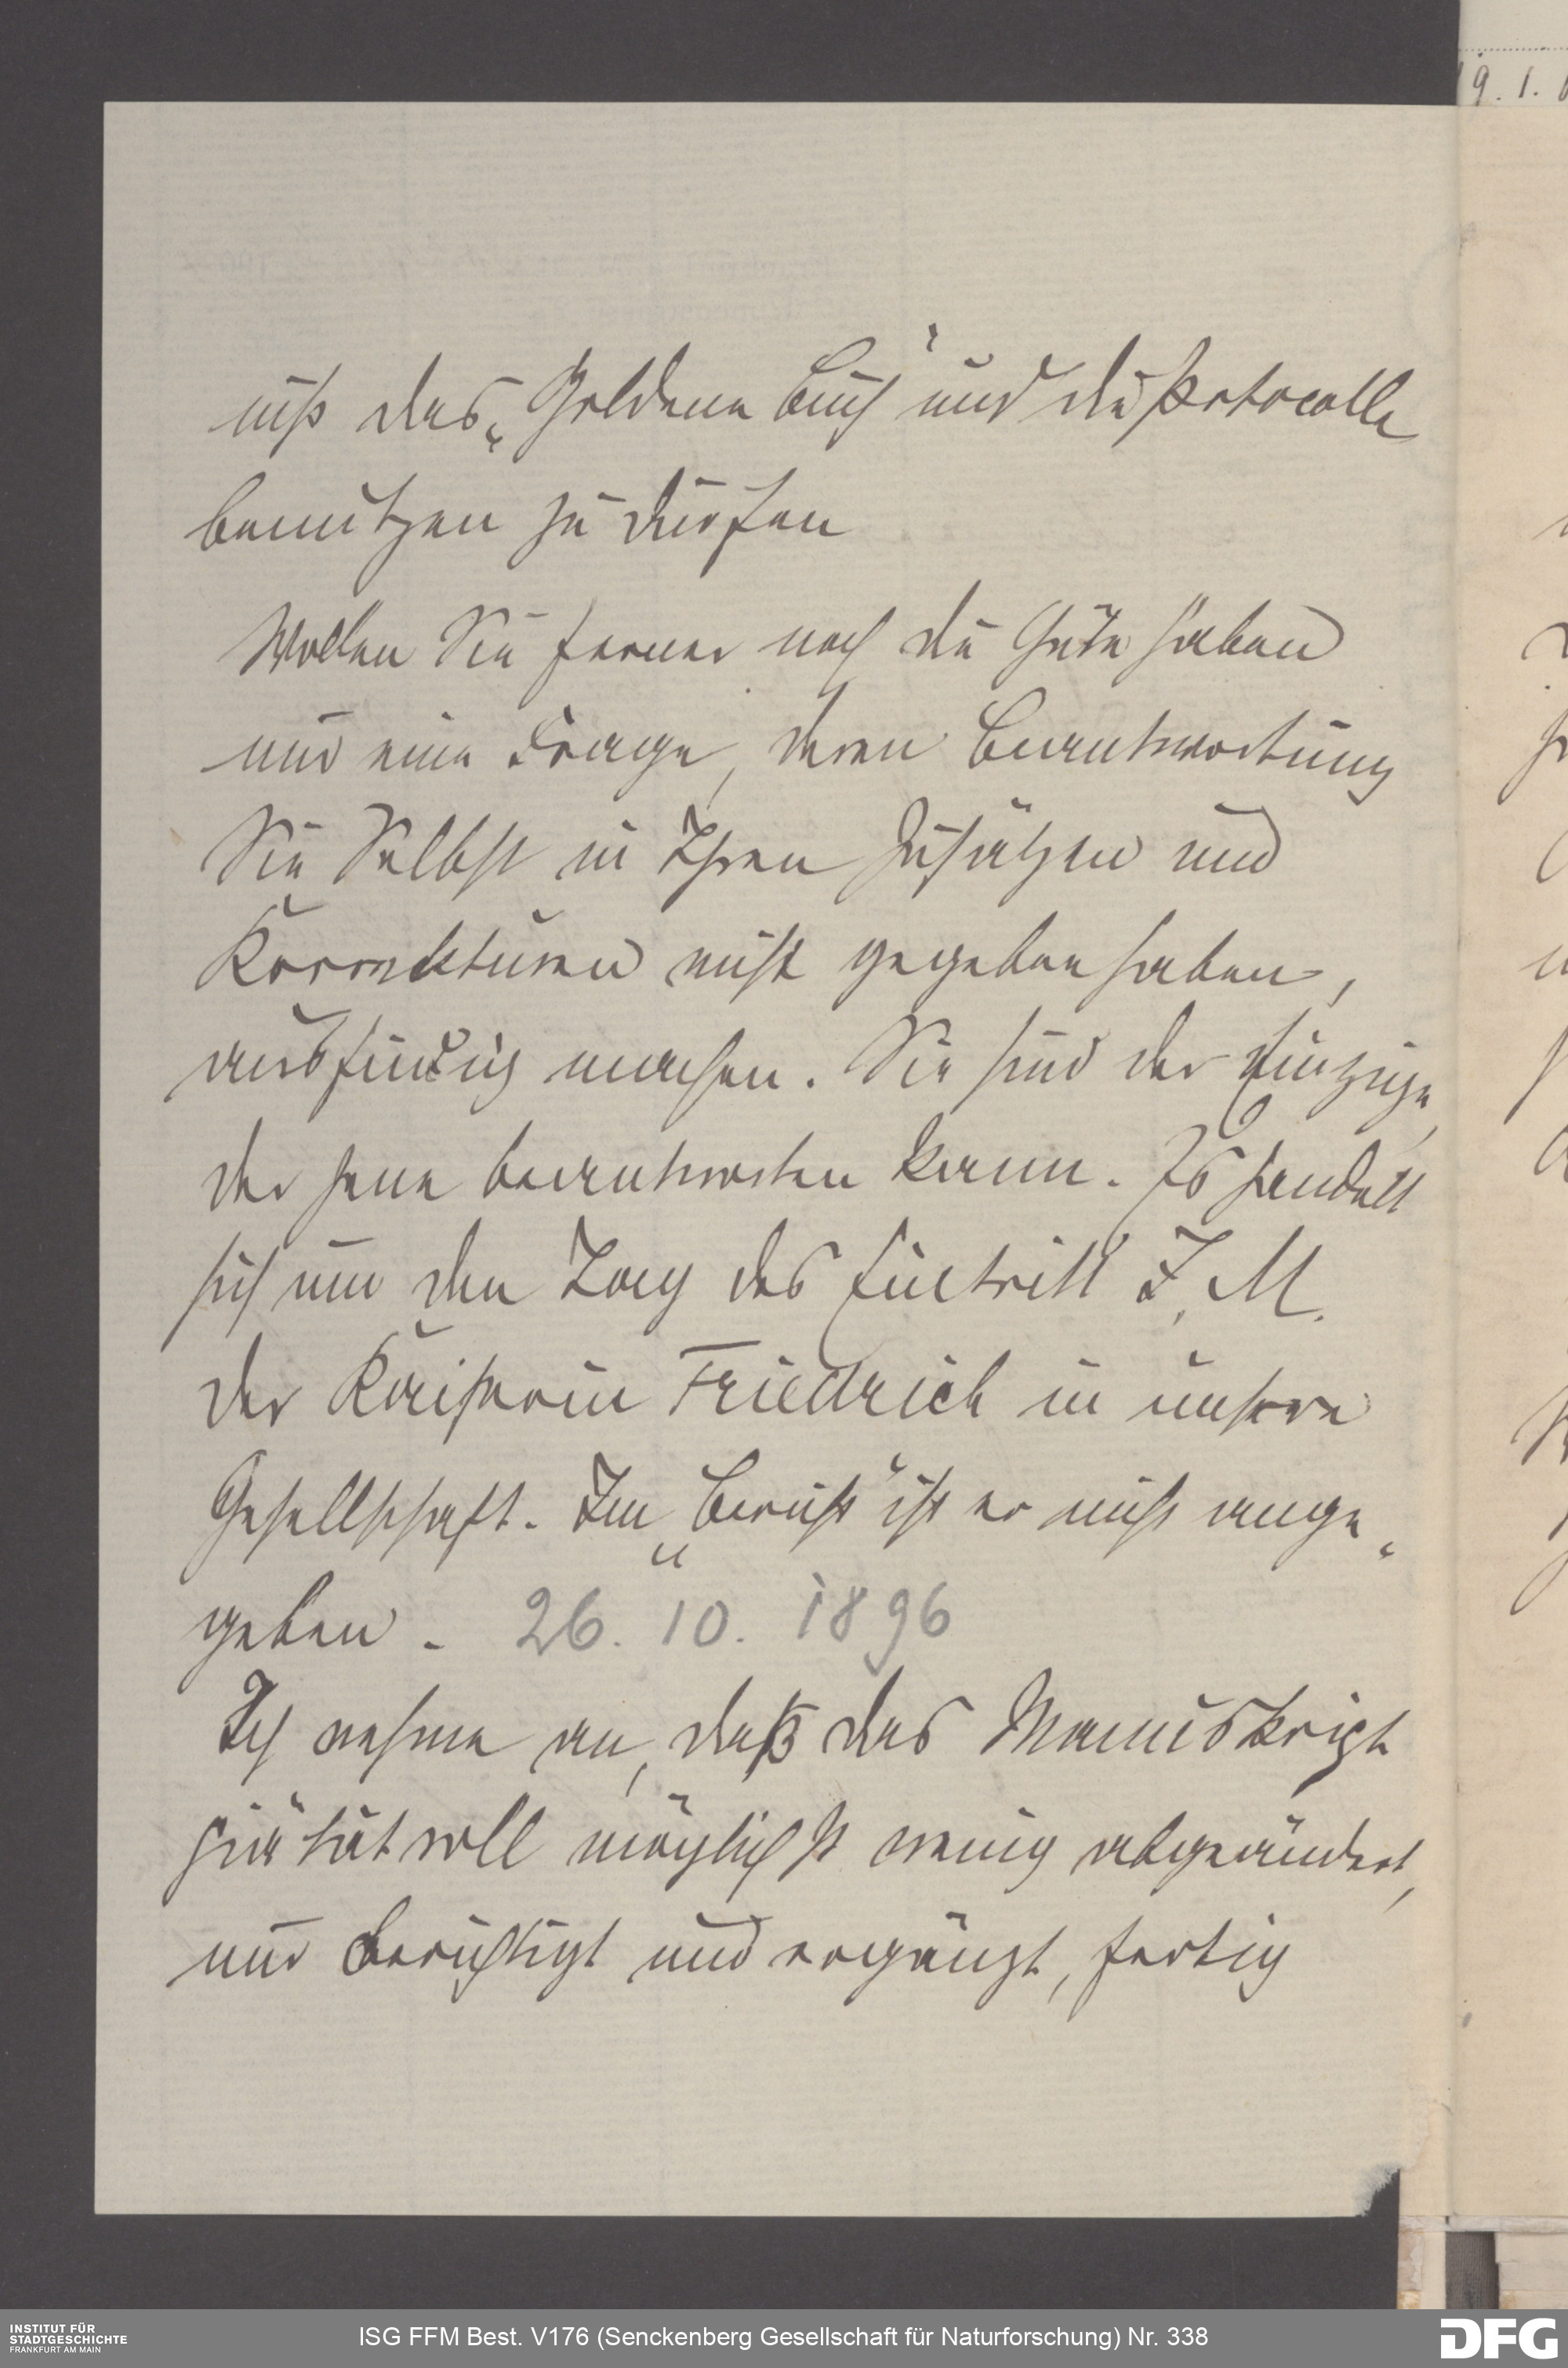 19. 1.
niß das „Goldene Buch" und die Protocolle
benutzen zu dürfen
Wollen Sie ferner noch die Güte haben
nur eine Frage, deren Beantwortung
Sie Selbst in Ihren Zusätzen und
Korrekturen nicht gegeben haben,
ausfindig machen. Sie sind der Einzige,
der jene beantworten kann. Es handelt
sich um den Tag des Eintritt I. M.
der Kaiserin Friedrich in unsere
Gesellschaft. Im „Bericht" ist er nicht ange-
geben. 26. 10. 1896
Ich nehme an, daß das Manuskript
pietätvoll möglichst wenig abgeändert,
nur berichtigt und ergänzt, fertig
INSTITUT FÜR
STADTGESCHICHTE
FRANKFURT AM MAIN
ISG FFM Best. V176 (Senckenberg Gesellschaft für Naturforschung) Nr. 338
DFG